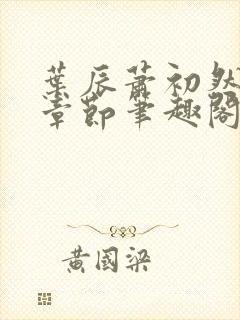 葉辰蕭初然
章節筆趣閣
黃國梁